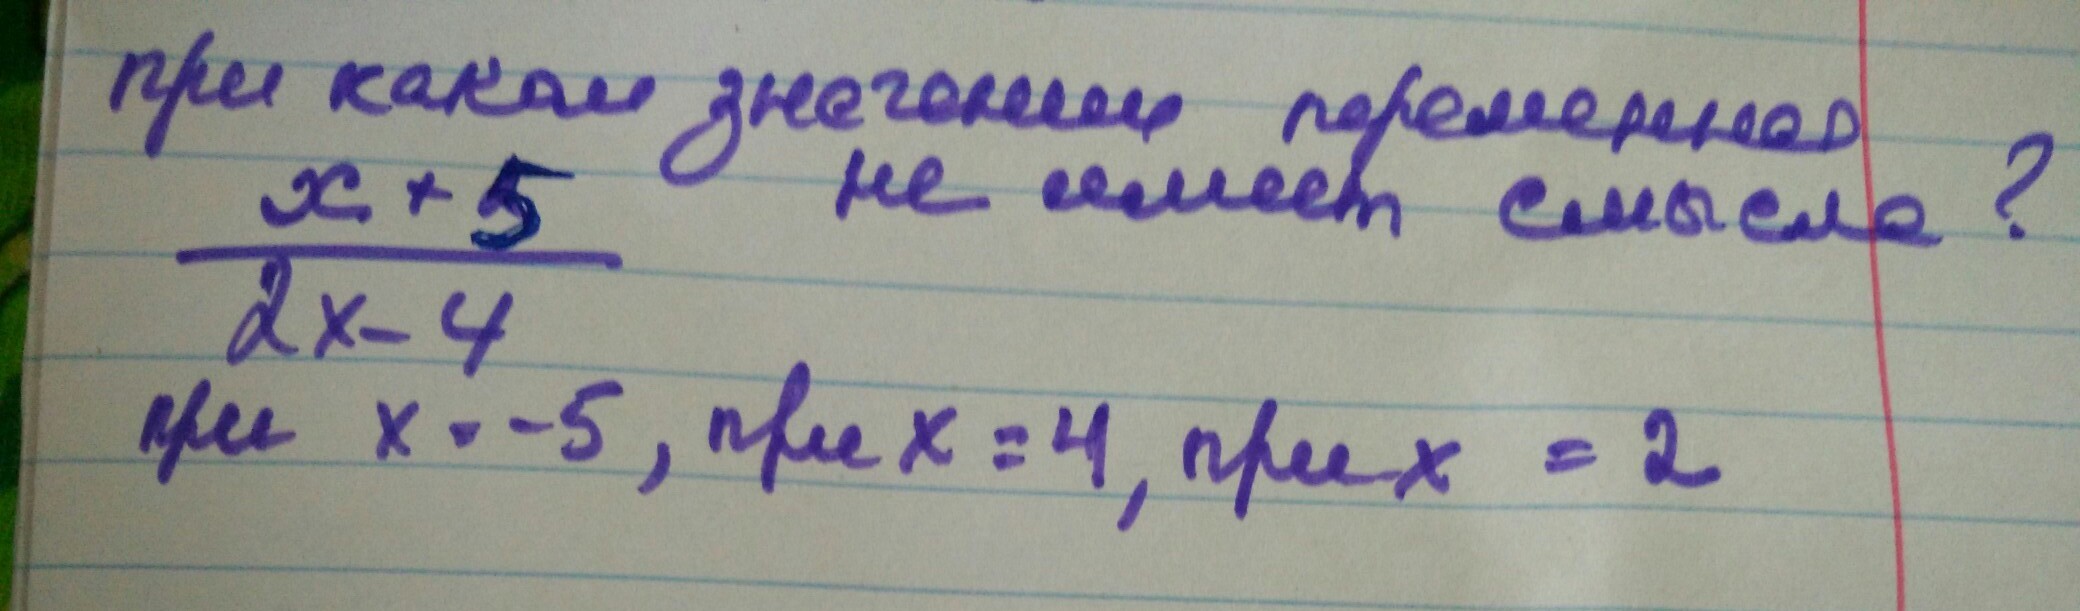 при каком значении переменная
x + 5 не имеет смысла ?
2x - 4
при x = -5, при x = 4, при x = 2